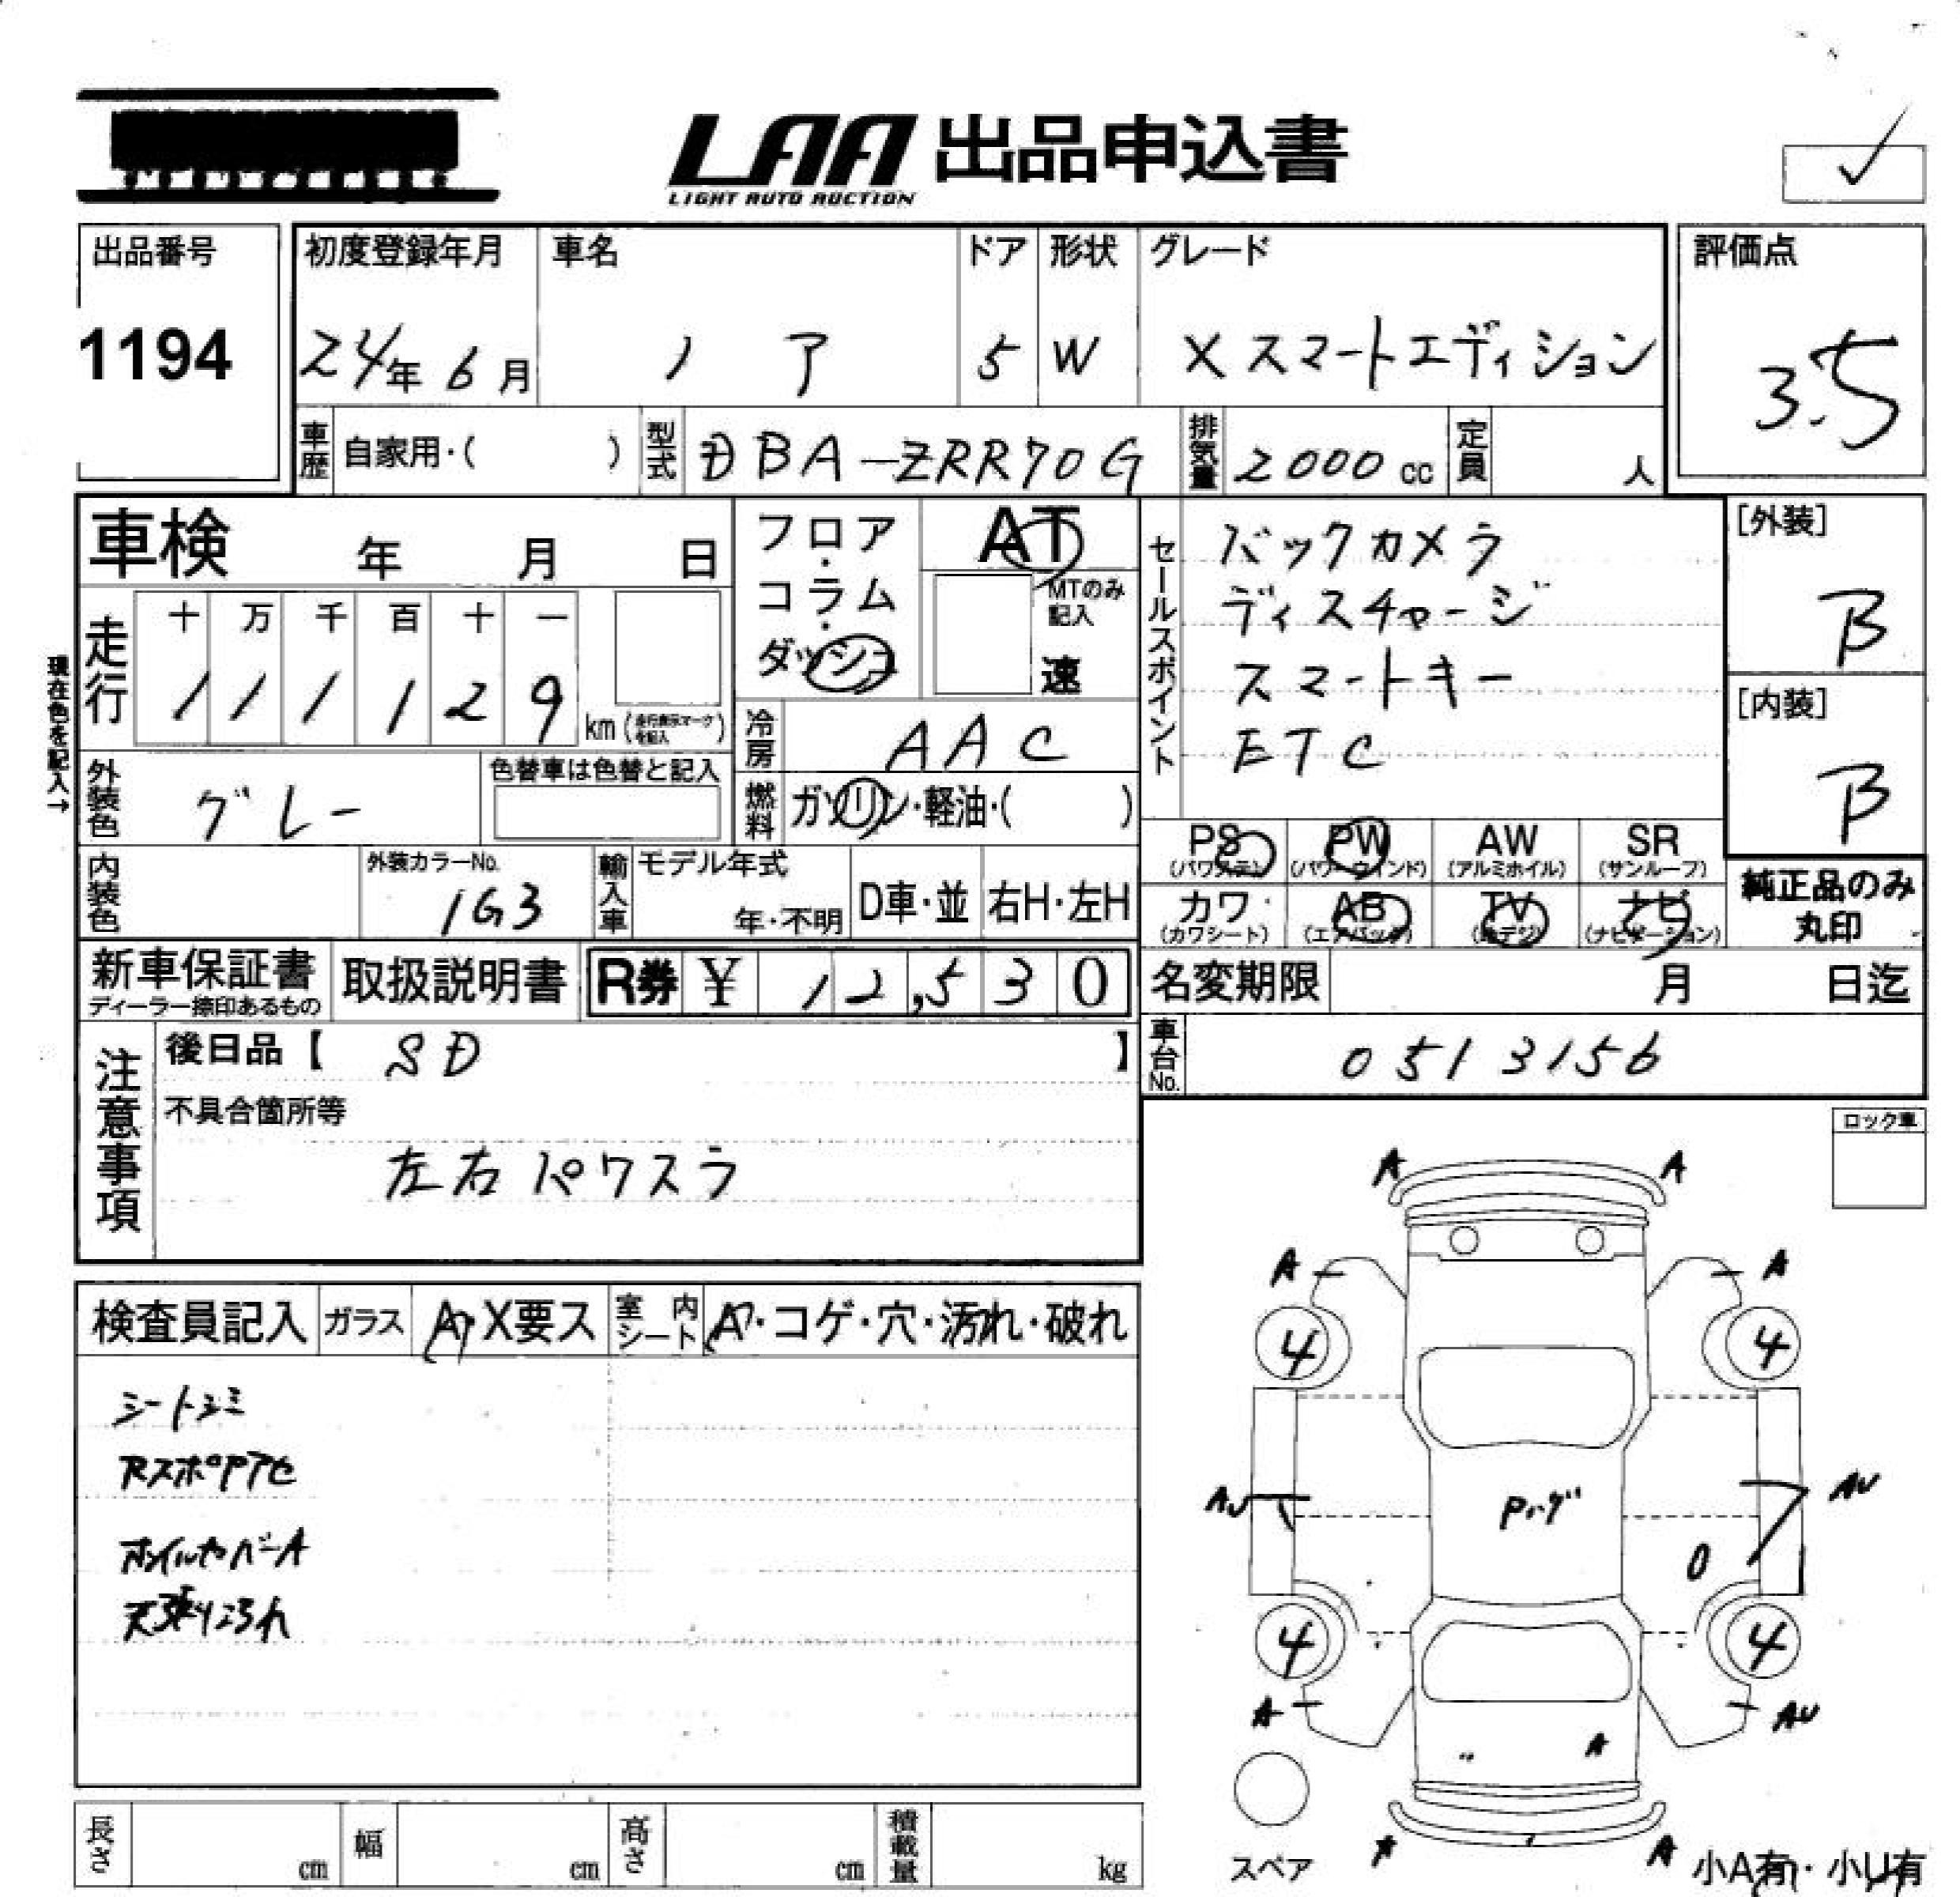 LAA 出品申込書
LIGHT AUTO AUCTION
出品番号
1194
初度登録年月
24年 6月
車名
ノア
ドア
5
形状
W
グレード
X スマートエディション
評価点
3.5
車歴 自家用・( )
型式 DBA-ZRR70G
排気量 2000 cc
定員 人
車検 年 月 日
フロア・コラム・ダッシュ
AT
MTのみ記入
速
セールスポイント
バックカメラ
ディスチャージ
スマートキー
ETC
[外装]
B
[内装]
B
現在色を記入→
走行
十 万 千 百 十 一
1 1 1 1 2 9
km (走行表示マークを記入)
冷房 AAC
外装色 グレー
色替車は色替と記入
燃料 ガソリン・軽油・( )
内装色
外装カラーNo.
1G3
輸入車
モデル年式
年・不明
D車・並
右H・左H
PS (パワステ)
PW (パワーウインド)
AW (アルミホイル)
SR (サンルーフ)
カワ (カワシート)
AB (エアバック)
TV (地デジ)
ナビ (ナビゲーション)
純正品のみ丸印
新車保証書
ディーラー捺印あるもの
取扱説明書
R券 ¥ 12,530
名変期限 月 日迄
注意事項
後日品【 SD 】
車台No. 0513156
不具合箇所等
左右パワスラ
ロック車
検査員記入
ガラス A・X要ス
室内シート A・コゲ・穴・汚れ・破れ
シートシミ
天張り汚れ
A A
A A
4 4
AU AU
0
4 4
A AU
A
A A
スペア
小A有・小U有
長さ cm
幅 cm
高さ cm
積載量 kg